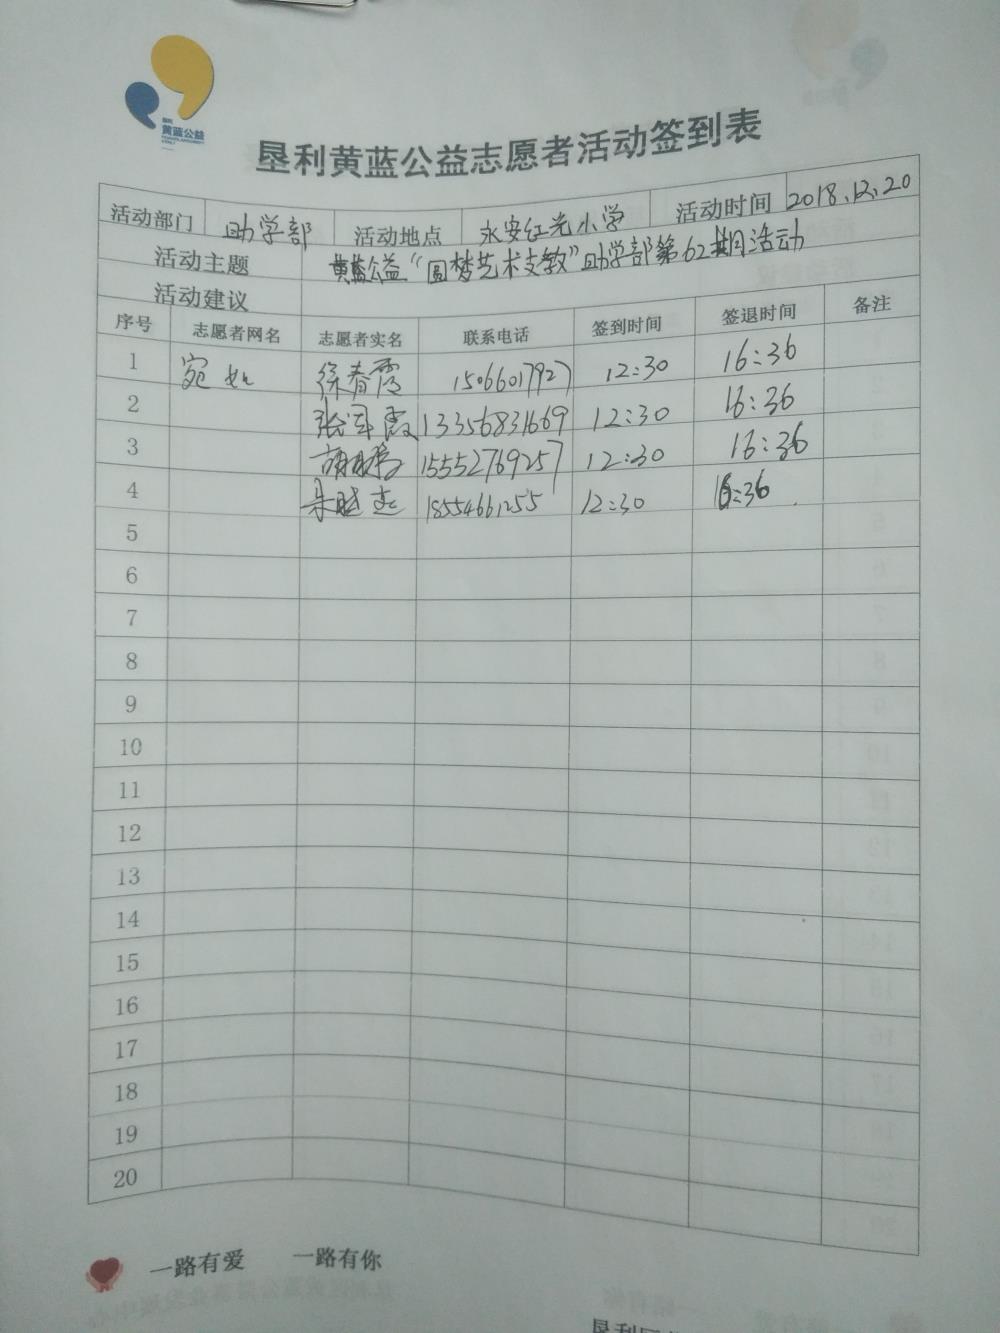 黄蓝公益
垦利黄蓝公益志愿者活动签到表
活动部门 助学部 活动地点 永安红光小学 活动时间 2018.12.20
活动主题 黄蓝公益“圆梦艺术支教”助学部第62期活动
活动建议
序号 志愿者网名 志愿者实名 联系电话 签到时间 签退时间 备注
1 宛如 徐春霞 15066017927 12:30 16:36
2 张军霞 13356831669 12:30 16:36
3 15552769257 12:30 16:36
4 朱 18554661255 12:30 16:36
5
6
7
8
9
10
11
12
13
14
15
16
17
18
19
20
一路有爱 一路有你
垦利区